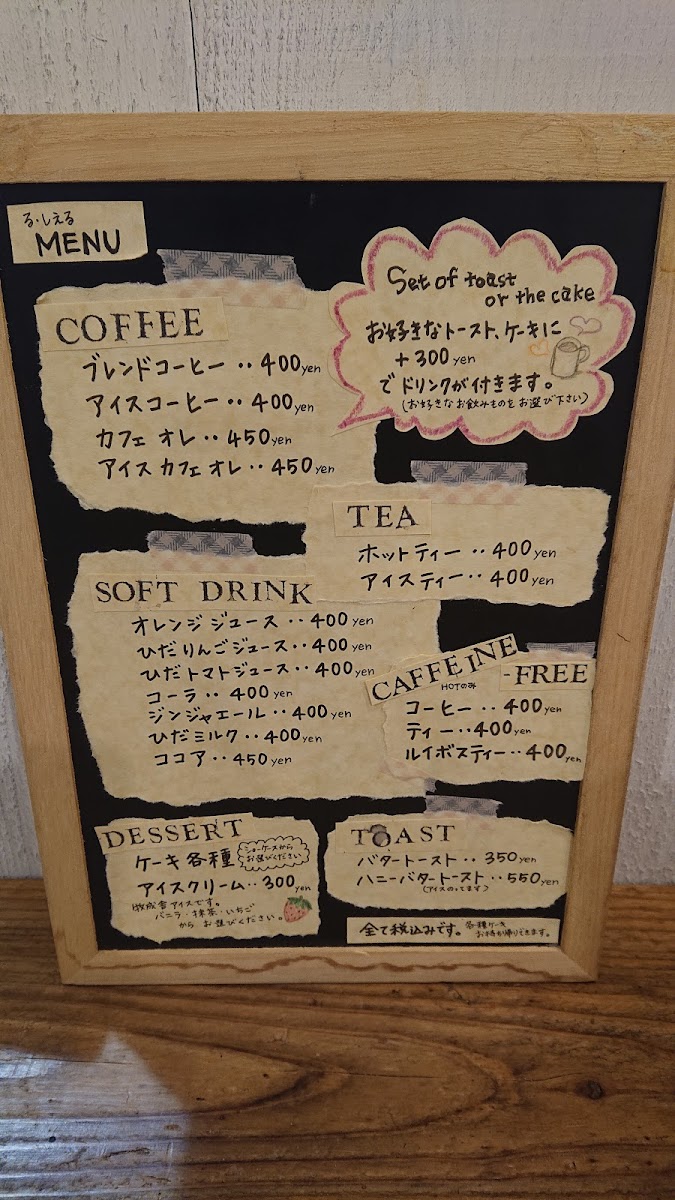 る・しえる
MENU
Set of toast
or the cake
お好きなトースト、ケーキに
+300yen
でドリンクが付きます。
(お好きなお飲みものをお選び下さい)
COFFEE
ブレンドコーヒー‥400yen
アイスコーヒー‥400yen
カフェオレ‥450yen
アイスカフェオレ‥450yen
TEA
ホットティー‥400yen
アイスティー‥400yen
SOFT DRINK
オレンジジュース‥400yen
ひだりんごジュース‥400yen
ひだトマトジュース‥400yen
コーラ‥400yen
ジンジャエール‥400yen
ひだミルク‥400yen
ココア‥450yen
CAFFEINE-FREE
HOTのみ
コーヒー‥400yen
ティー‥400yen
ルイボスティー‥400yen
DESSERT
ケーキ各種
ショーケースから
お選びください
アイスクリーム‥300yen
牧成舎アイスです。
バニラ・抹茶・いちご
から お選びください。
TOAST
バタートースト‥350yen
ハニーバタートースト‥550yen
(アイスのってます)
全て税込みです。
各種ケーキ
お持ち帰りできます。